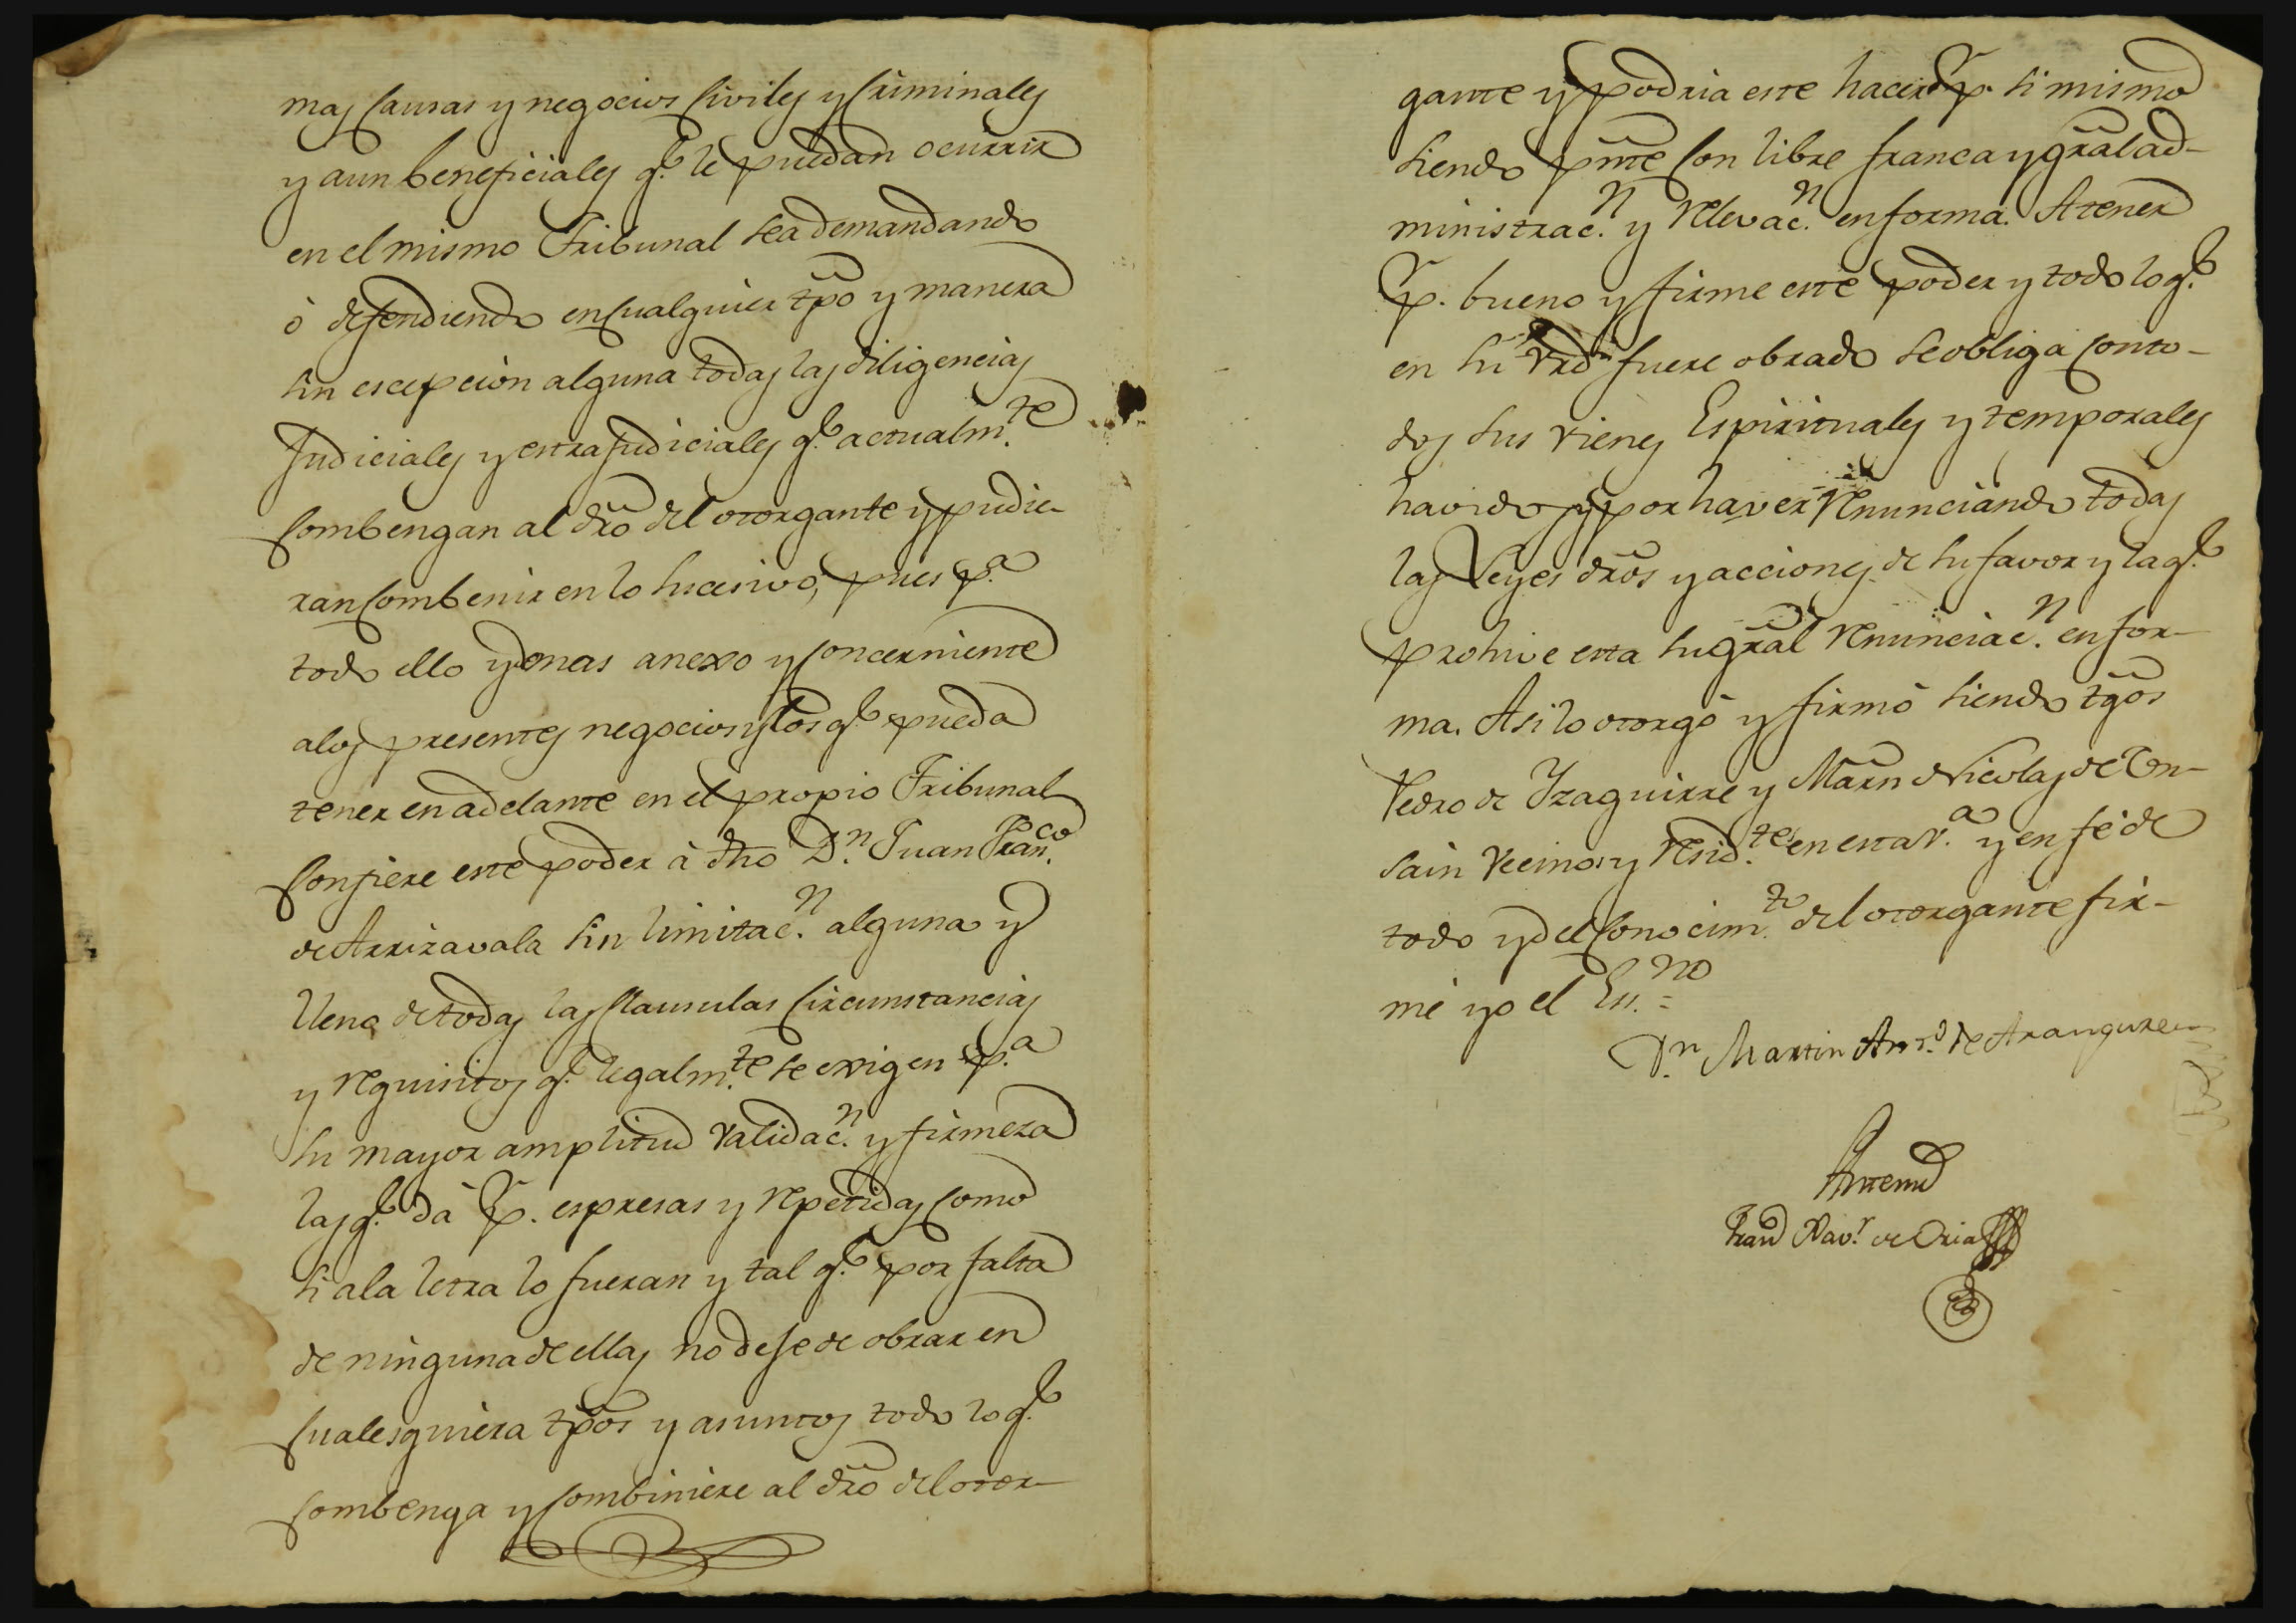 mas Causas y negocios Civiles y Criminales
y aun beneficiales q.e le puedan ocurrir
en el mismo Tribunal sea demandando
ò defendiendo en Cualquier tpo y manera
sin escepcion alguna todas las diligencias
Judiciales y extrajudiciales q.e actualm.te
Combengan al dro del otorgante y pudie-
ran Combenir en lo sucesivo, pues p.a
todo ello y demas anexo y Concerniente
a los presentes negocios y los q.e pueda
tener en adelante en el propio Tribunal
Confiere este poder à dho D.n Juan Fran.co
de Arrizavala sin limitac.n alguna y
lleno de todas las Clausulas Circunstancias
y requisitos q.e legalm.te se exigen p.a
su mayor amplitud validac.n y firmeza
las q.e dà p.r espresas y repetidas Como
si a la letra lo fueran y tal q.e por falta
de ninguna de ellas no deje de obrar en
Cualesquiera tpos y asuntos todo lo q.e
Combenga y Combiniere al dro del otor-
gante y podria este hacer p.r si mismo
siendo pnte Con libre franca y gral ad-
ministrac.n y relevac.n en forma. A tener
p.r bueno y firme este poder y todo lo q.e
en su vrd fuere obrado se obliga Con to-
dos sus vienes Espirituales y temporales
havidos y por haver renunciando todas
las Leyes dros y acciones de su favor y la q.e
prohive esta su gral renunciac.n en for-
ma. Asi lo otorgò y firmò siendo tgos
Pedro de Yzaguirre y Martn Nicolas de Con-
sain vecinos y resid.tes en esta v.a y en fè de
todo y del Conocim.to del otorgante fir-
mè yo el Ess.no =
D.n Martin Ant.o de Aranguren
Ante mi
Fran.co Xav.r de Oria